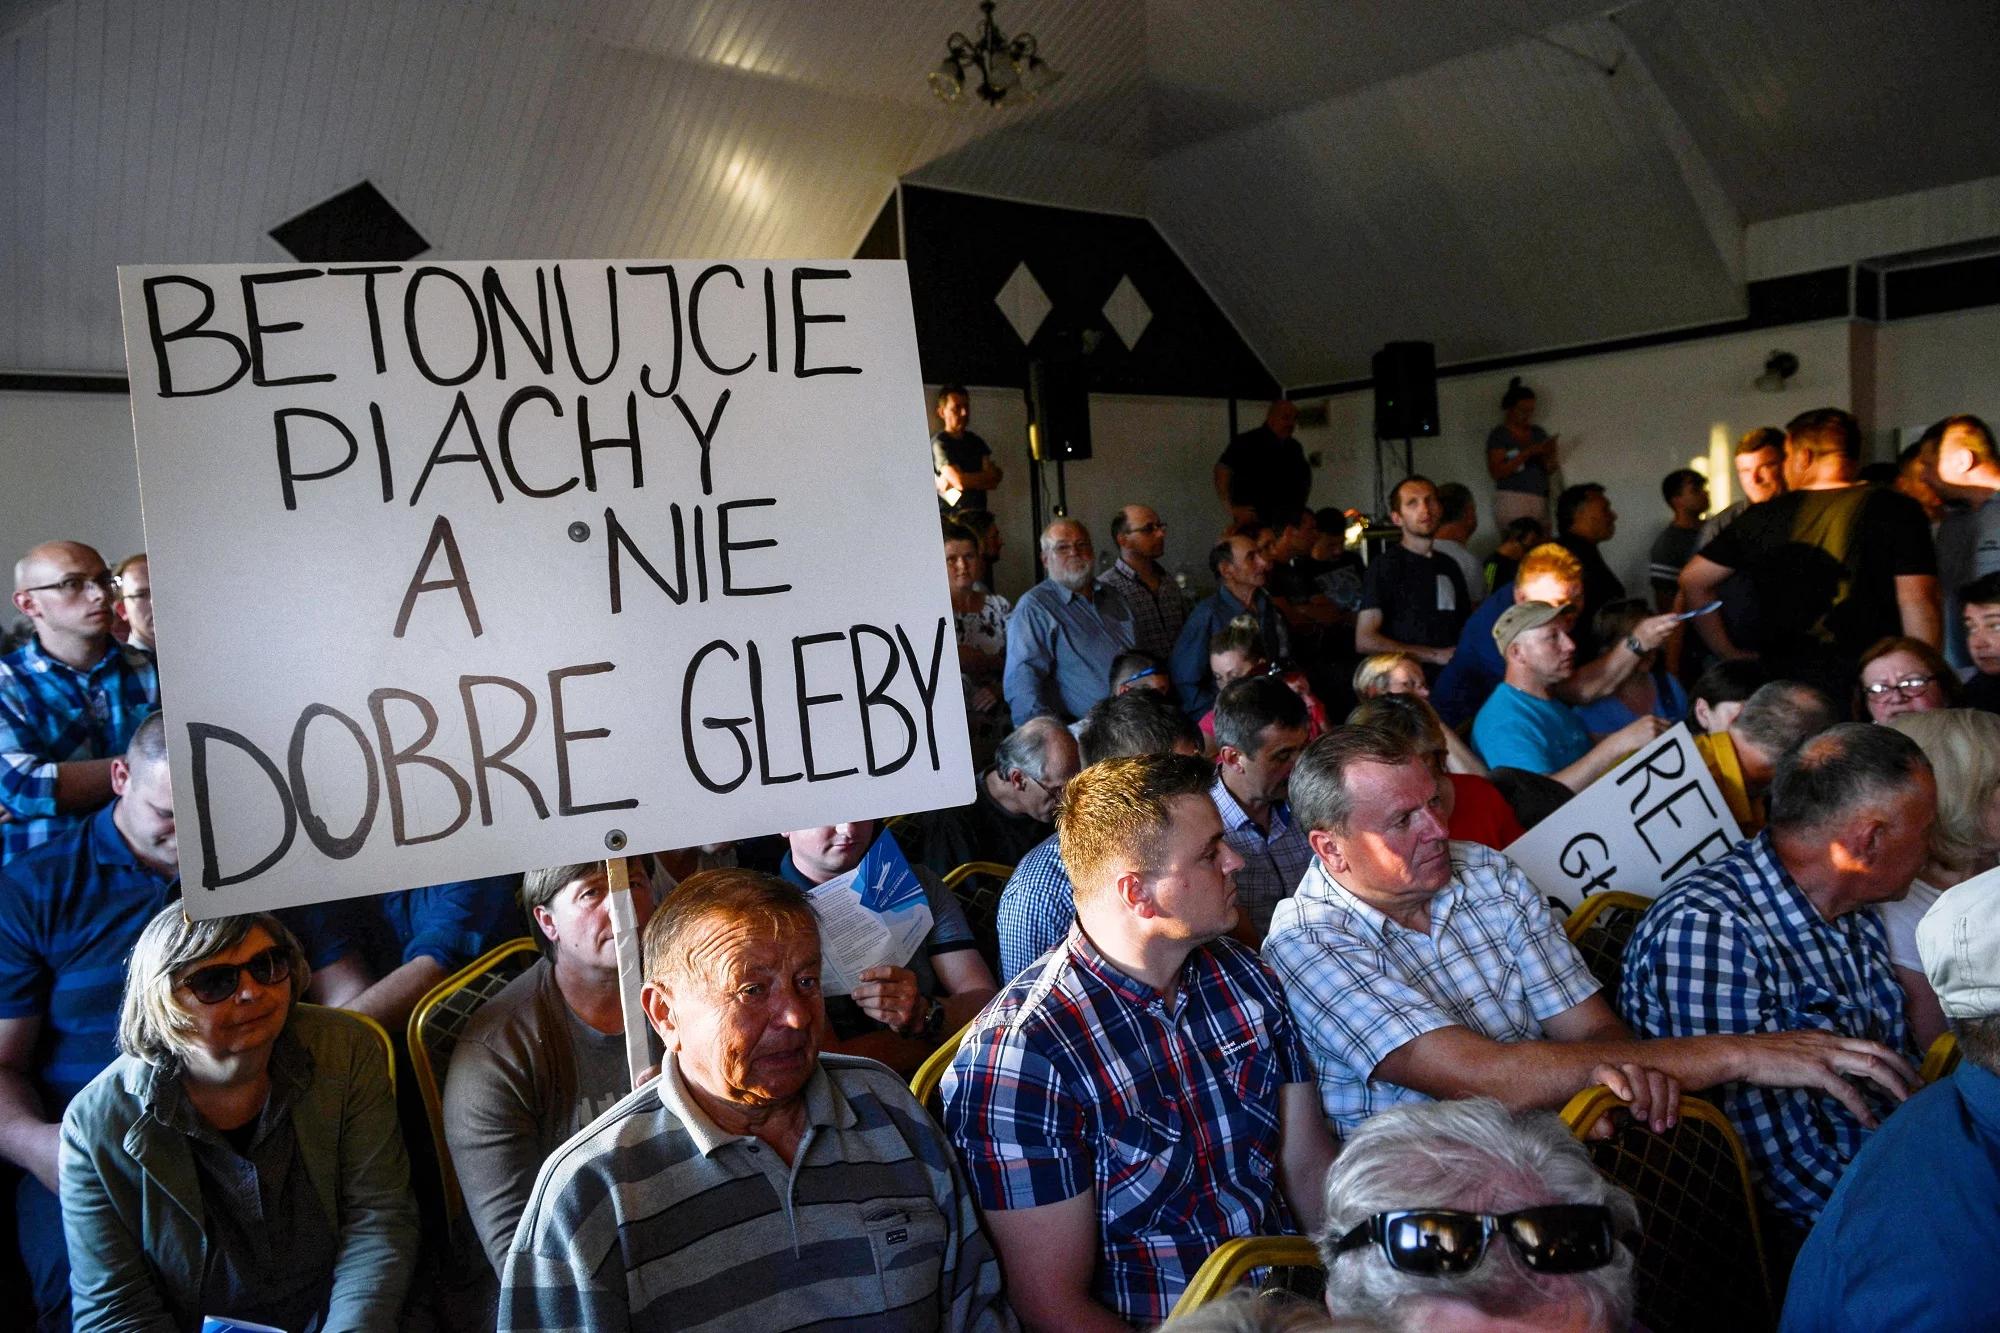 BETONUJCIE
PIACHY
A NIE
DOBRE GLEBY